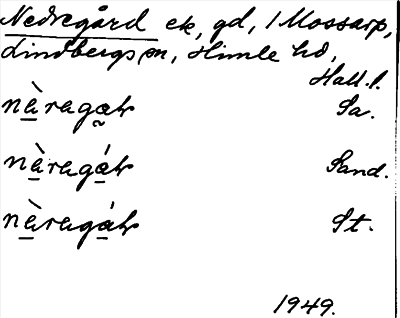 Nedregård ek, gd, i Mossarp,
Lindbergs sn, Himle hd,
Hall. l.
nàraga̰ɫs Sa.
nàragáɫs Sand.
nàragáɫs St.
1949.